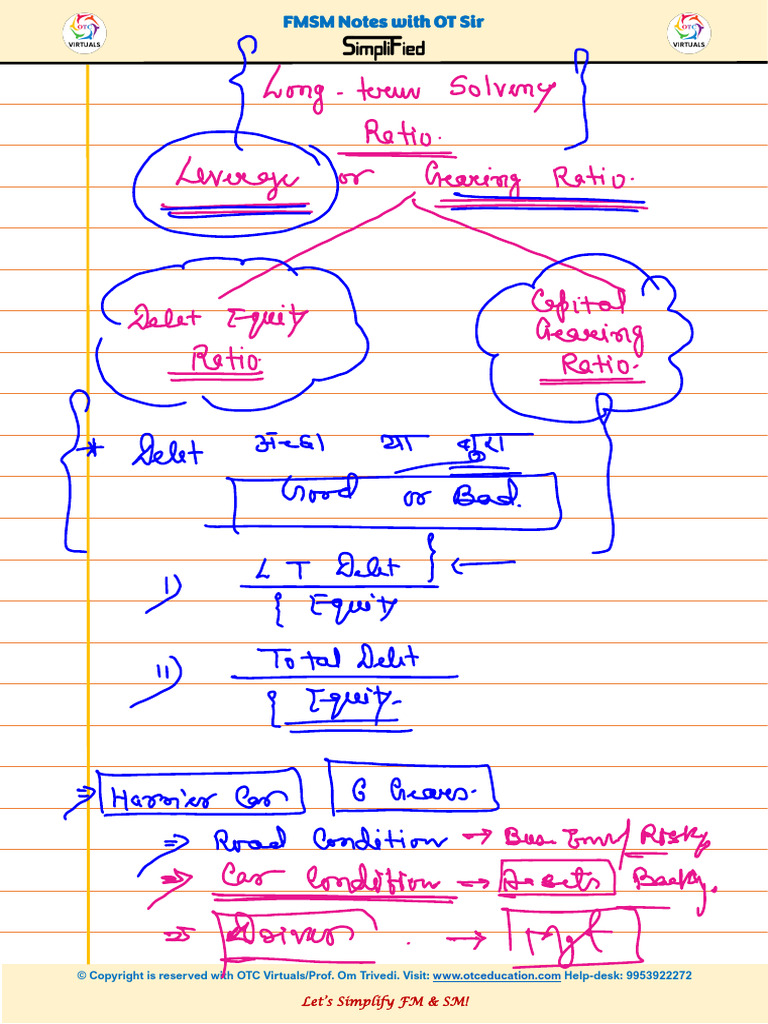 OTC
VIRTUALS
FMSM Notes with OT Sir
SimpliFied
OTC
VIRTUALS
Long-term Solvency
Ratio.
Leverage or Gearing Ratio.
Debt Equity
Ratio.
Capital
Gearing
Ratio.
* Debt अच्छा या बुरा
Good or Bad.
i) LT Debt
Equity
ii) Total Debt
Equity
⇒ Harrier Car 6 Gears.
⇒ Road Condition → Bus. Env / Risky
⇒ Car Condition → Assets
⇒ Driver → Mgt
© Copyright is reserved with OTC Virtuals/Prof. Om Trivedi. Visit: www.otceducation.com Help-desk: 9953922272
Let's Simplify FM & SM!